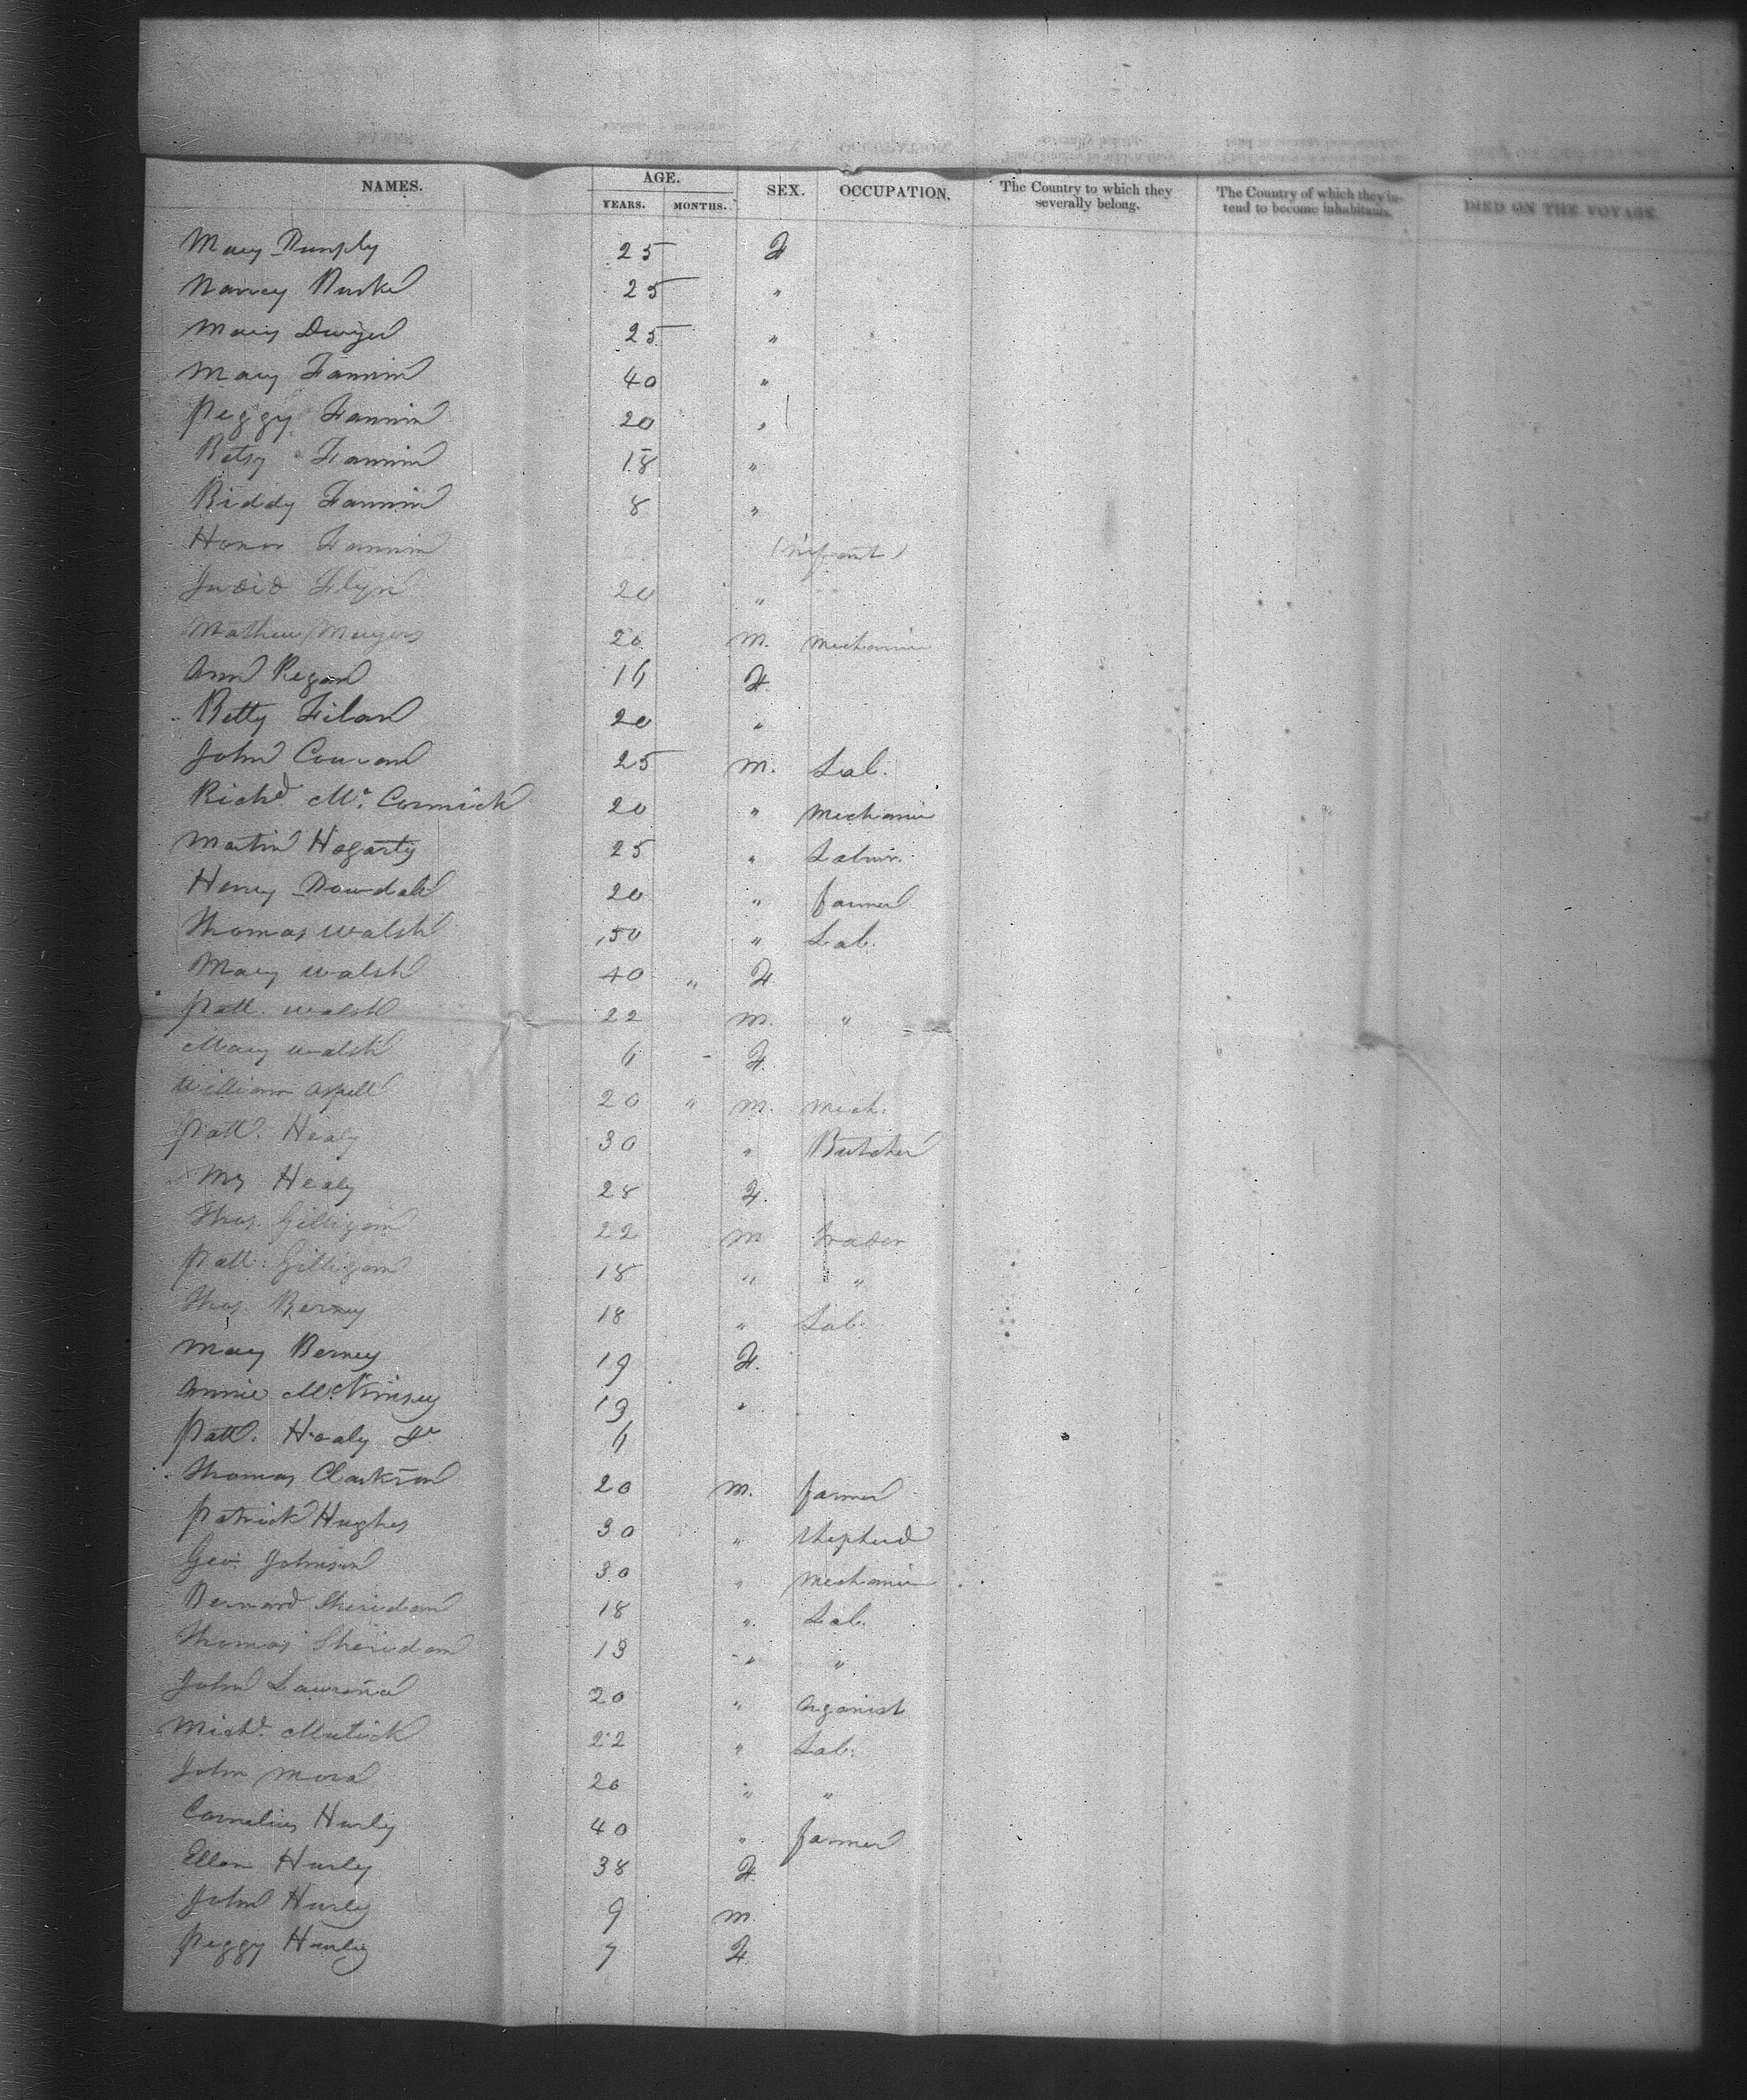 NAMES. AGE. YEARS. MONTHS. SEX. OCCUPATION. The Country to which they severally belong. The Country of which they intend to become inhabitants. DIED ON THE VOYAGE.
Mary Dunphy 25 F
Nancy Burke 25 "
Mary Dwyer 25 "
Mary Fannin 40 "
Peggy Fannin 20 "
Betsy Fannin 18 "
Biddy Fannin 8 "
Honor Fannin (infant)
Flyn 20 "
Mathew Mayers 20 m. mechanic
Ann Regan 16 F.
Betty Filan 20 "
John Couran 25 m. Lab.
Richd. Mc. Cormick 20 " mechanic
Martin Hogarty 25 " Labur.
Henry Dowdall 20 " farmer
Thomas Walsh 50 " Lab.
Mary Walsh 40 " F
Patt. Walsh 22 m. "
Mary Walsh 6 - F.
William Aspell 20 " m. mech.
Patt. Healy 30 " Butcher
Mrs Healy 28 F.
Thos. Gilligan 22 m trader
Patt. Gilligan 18 " "
Thos. Berney 18 " Lab.
Mary Berney 19 F.
Annie McKinsey 19 "
Patt. Healy Jr 6
Thomas Clarkson 20 m. farmer
Patrick Hughes 30 " Shepherd
Geo. Johnson 30 " mechanic
Bernard Sheridan 18 " Lab.
Thomas Sheridan 13 " "
John Lawrence 20 " Organist
Michl. Mutick 22 " Lab.
John Mora 20 " "
Cornelius Hurly 40 " farmer
Ellen Hurly 38 F.
John Hurly 9 m.
Peggy Hurly 7 F.